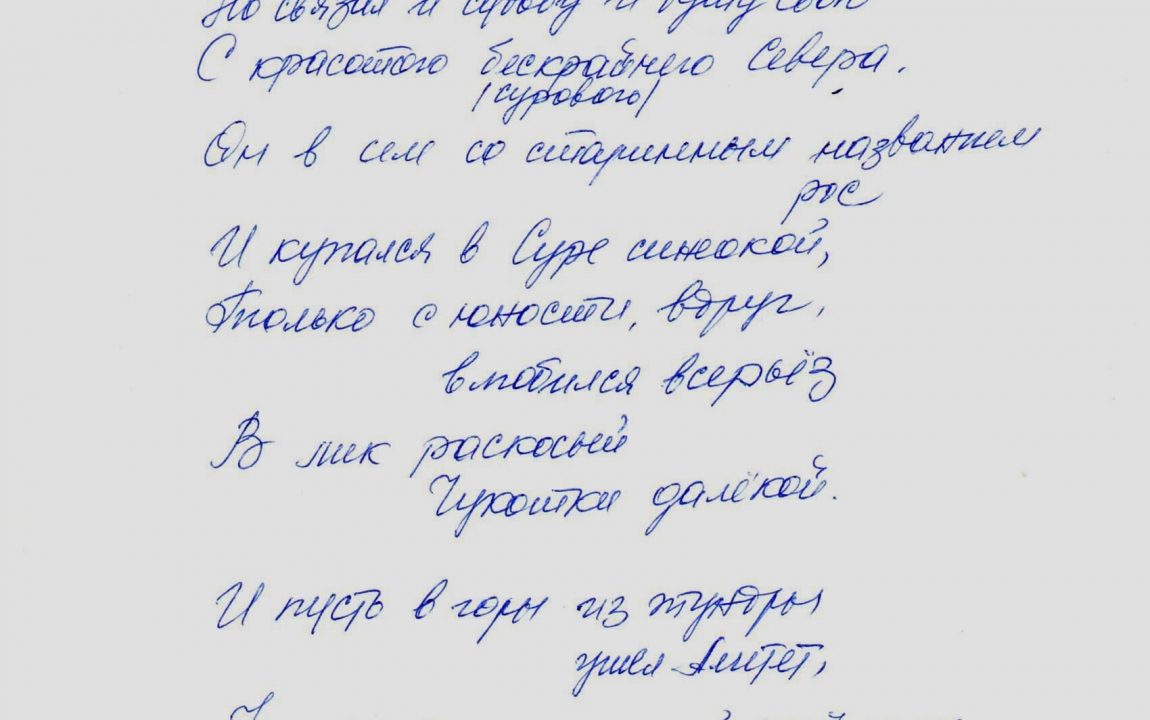 Но связал и судьбу и душу свою
С красотою бескрайнего Севера.
/сурового/
Он в сем со старинным названием
рос
И купался в Суре синеокой,
Только с юности, вдруг,
влюбился всерьёз
В лик раскосый
Чукотки далёкой.
И пусть в горы из тундры
ушел Алитет,